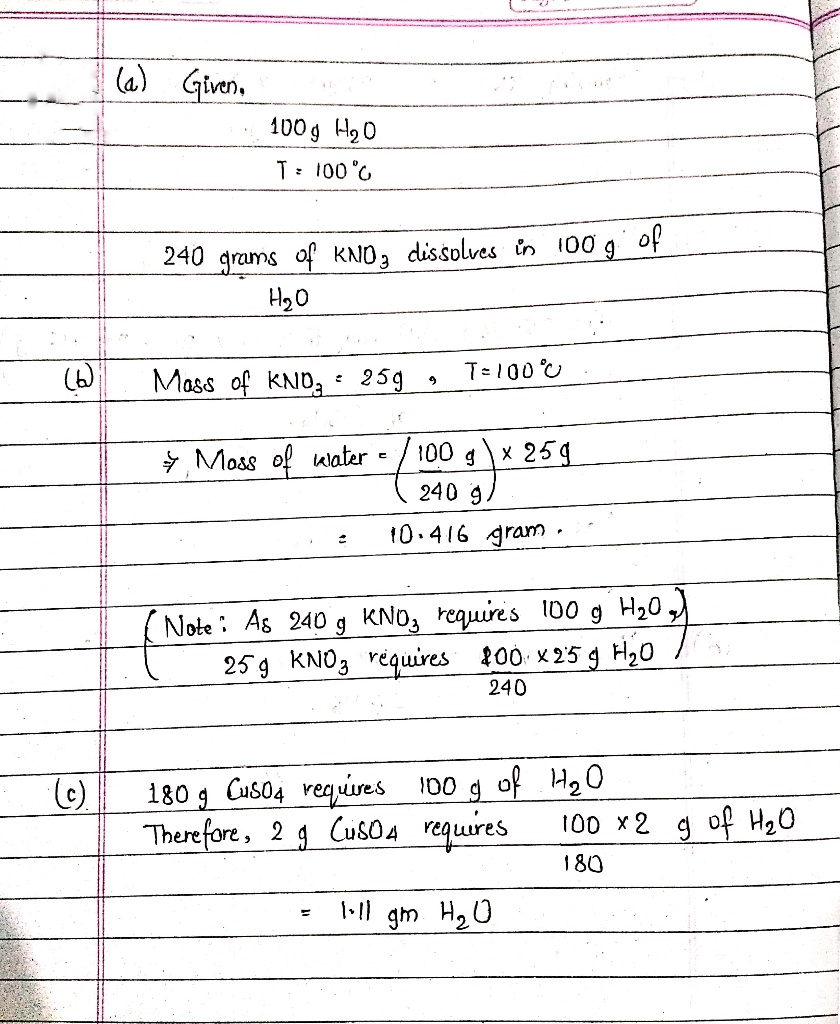 (a) Given,
100g H₂O
T = 100°C
240 grams of KNO₃ dissolves in 100 g of
H₂O
(b) Mass of KNO₃ = 25g , T=100°C
⇒ Mass of water = (100 g / 240 g) × 25g
= 10.416 gram.
(Note: As 240 g KNO₃ requires 100 g H₂O,
25g KNO₃ requires 100 × 25 g H₂O)
240
(c) 180 g CuSO4 requires 100 g of H₂O
Therefore, 2 g CuSO4 requires 100 × 2 g of H₂O
180
= 1.11 gm H₂O